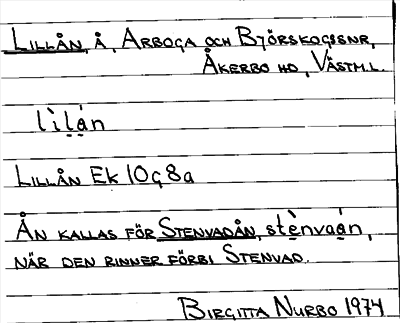 LILLÅN, Å, ARBOGA OCH BJÖRSKOGSSNR,
ÅKERBO HD, VÄSTM.L.
lìlå̀n
LILLÅN EK 10G8a
ÅN KALLAS FÖR STENVADÅN, stènvaån,
NÄR DEN RINNER FÖRBI STENVAD.
BIRGITTA NURBO 1974